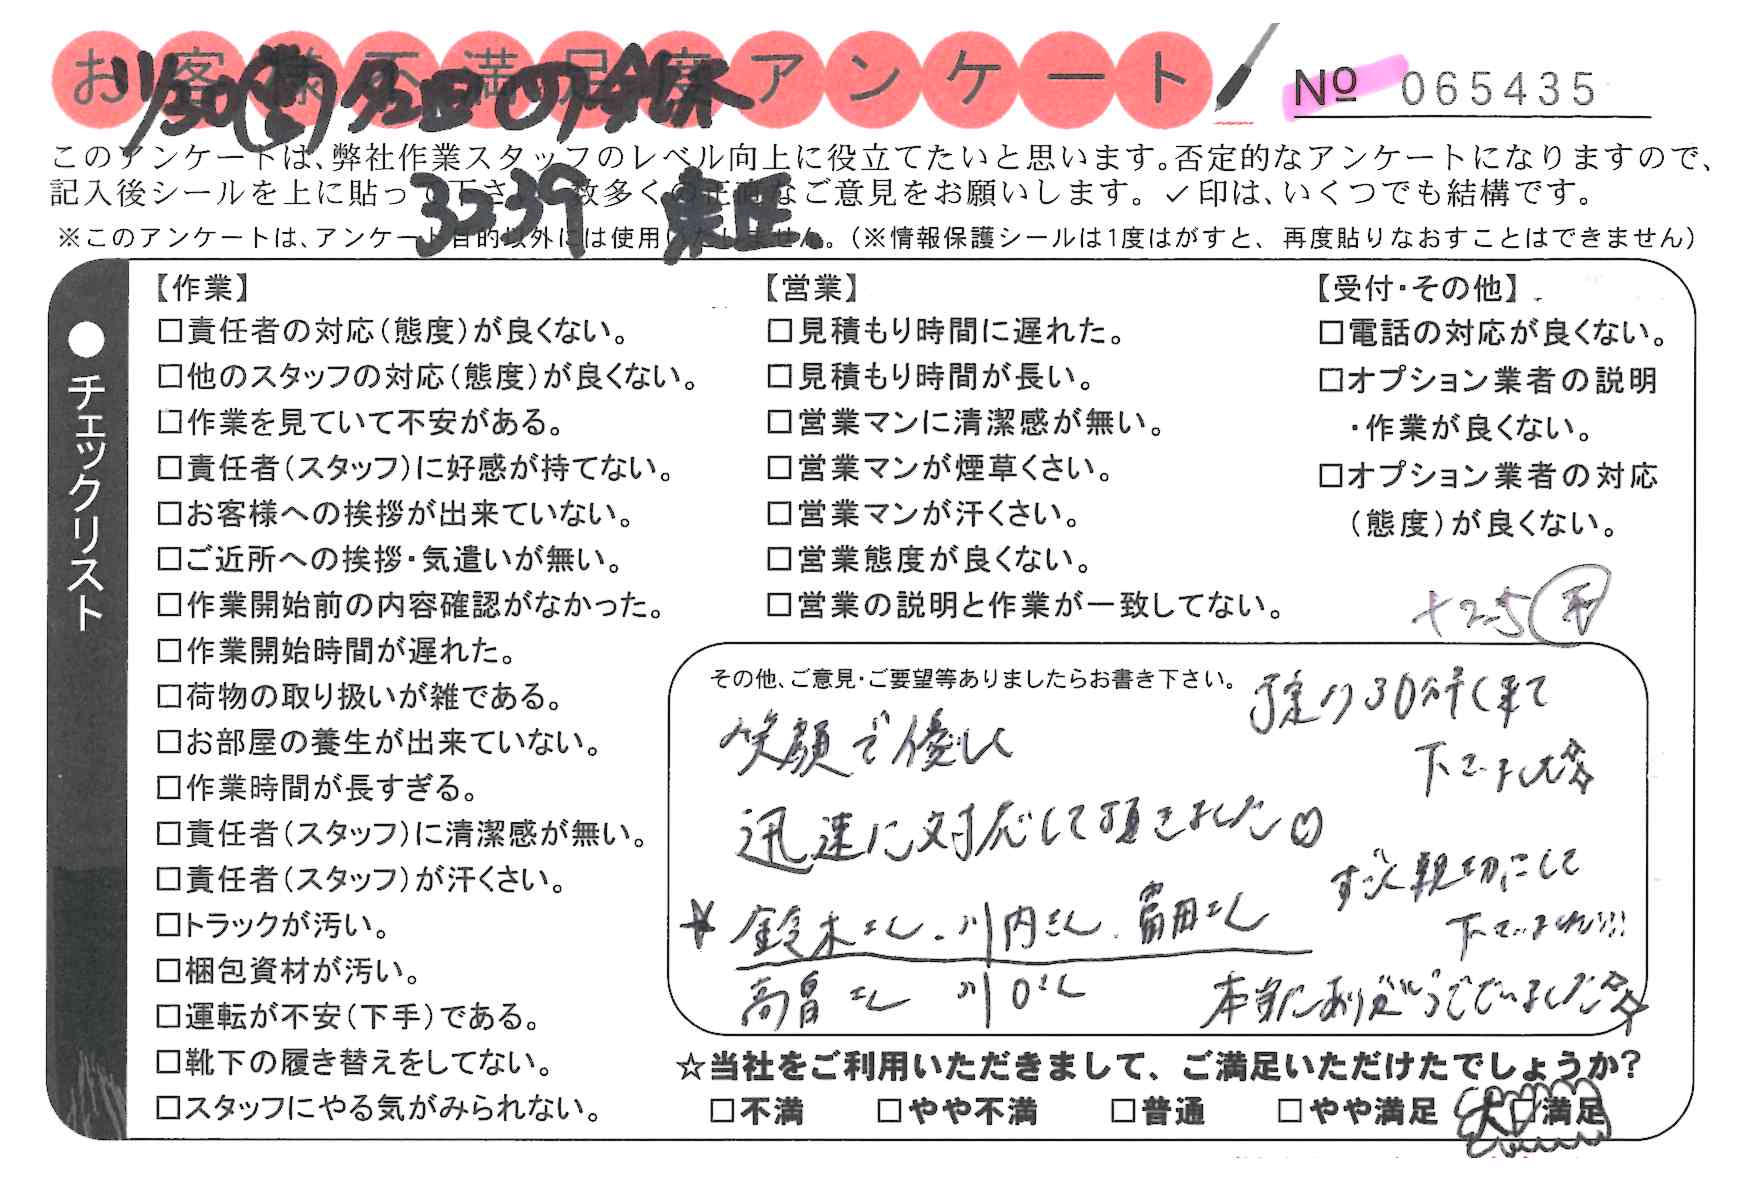 お客様不満足度アンケート
№ 065435
11/30(土)
3239
このアンケートは、弊社作業スタッフのレベル向上に役立てたいと思います。否定的なアンケートになりますので、
記入後シールを上に貼って下さい。数多くの正直なご意見をお願いします。✓印は、いくつでも結構です。
※このアンケートは、アンケート目的以外には使用いたしません。(※情報保護シールは1度はがすと、再度貼りなおすことはできません)
●チェックリスト
【作業】
□責任者の対応(態度)が良くない。
□他のスタッフの対応(態度)が良くない。
□作業を見ていて不安がある。
□責任者(スタッフ)に好感が持てない。
□お客様への挨拶が出来ていない。
□ご近所への挨拶・気遣いが無い。
□作業開始前の内容確認がなかった。
□作業開始時間が遅れた。
□荷物の取り扱いが雑である。
□お部屋の養生が出来ていない。
□作業時間が長すぎる。
□責任者(スタッフ)に清潔感が無い。
□責任者(スタッフ)が汗くさい。
□トラックが汚い。
□梱包資材が汚い。
□運転が不安(下手)である。
□靴下の履き替えをしてない。
□スタッフにやる気がみられない。
【営業】
□見積もり時間に遅れた。
□見積もり時間が長い。
□営業マンに清潔感が無い。
□営業マンが煙草くさい。
□営業マンが汗くさい。
□営業態度が良くない。
□営業の説明と作業が一致してない。
【受付・その他】
□電話の対応が良くない。
□オプション業者の説明
・作業が良くない。
□オプション業者の対応
(態度)が良くない。
+25
その他、ご意見・ご要望等ありましたらお書き下さい。
笑顔で優しく
迅速に対応して頂きました♡
★鈴木さん、川内さん、富田さん
高畠さん 川口さん
予定より30分早く来て
下さいました☆
すごく親切にして
下さいました!!!
本当にありがとうございました☆
☆当社をご利用いただきまして、ご満足いただけたでしょうか?
□不満 □やや不満 □普通 □やや満足 大□満足